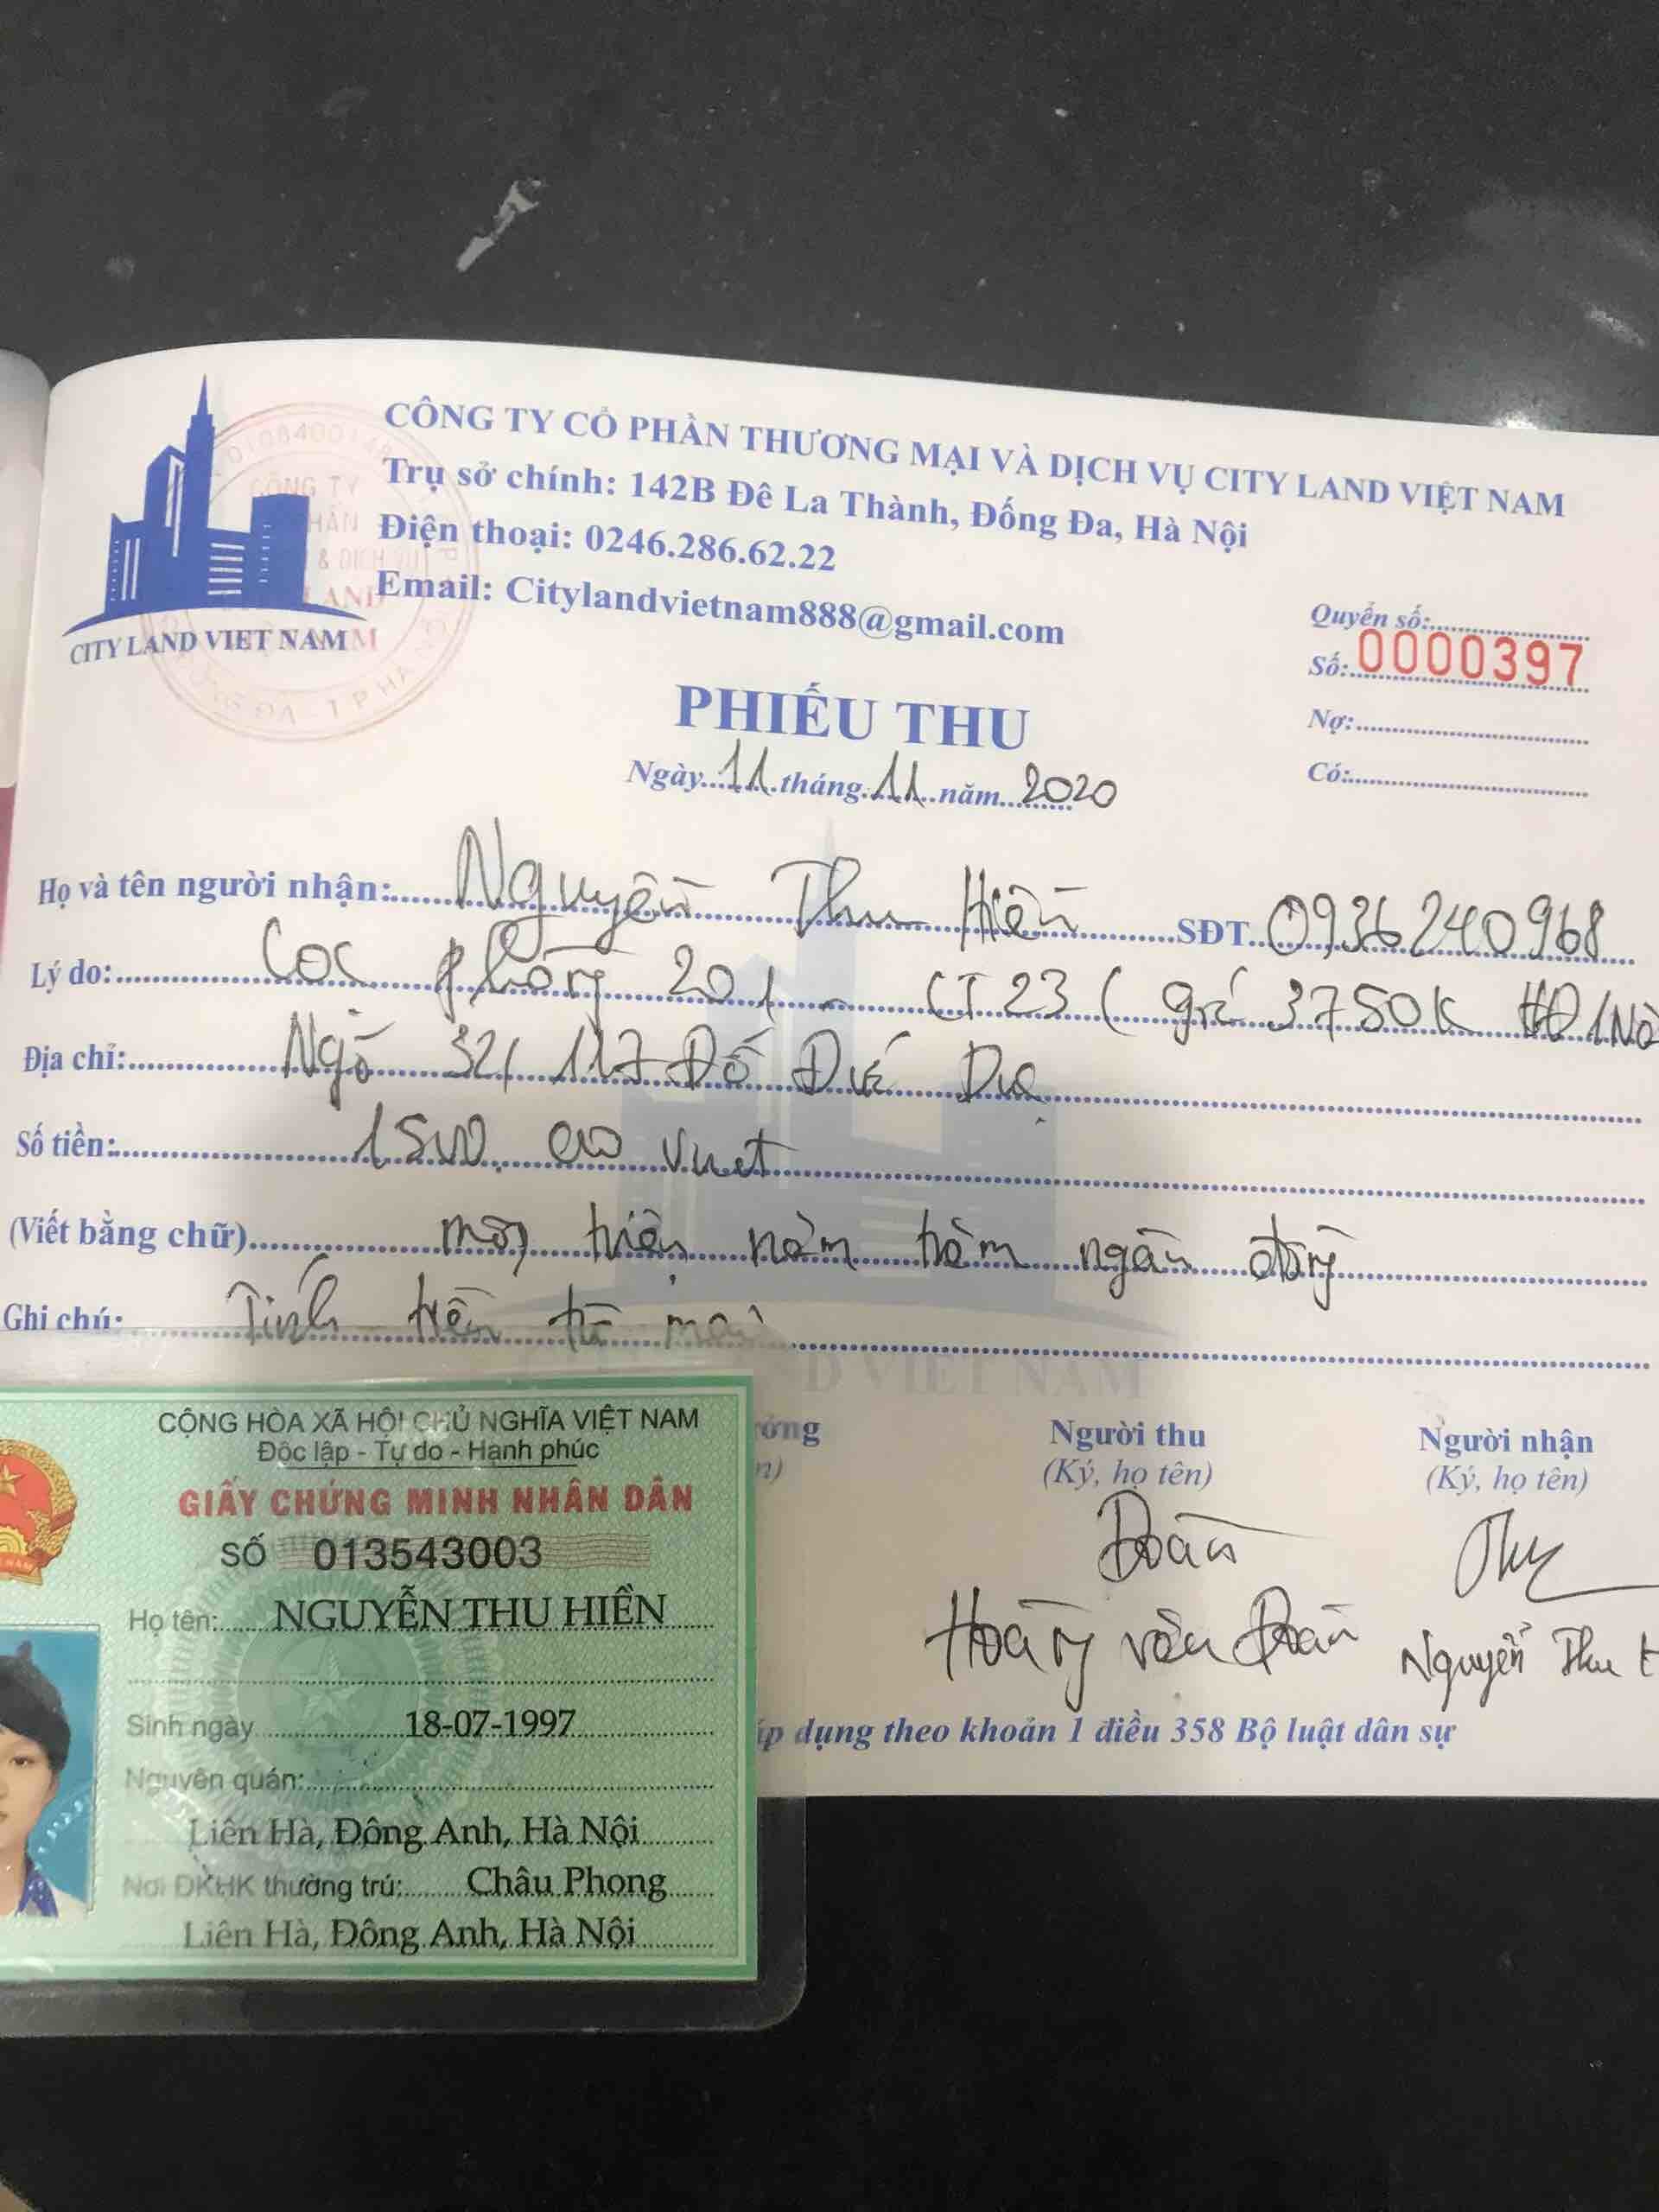 CÔNG TY CỔ PHẦN THƯƠNG MẠI VÀ DỊCH VỤ CITY LAND VIỆT NAM
Trụ sở chính: 142B Đê La Thành, Đống Đa, Hà Nội
Điện thoại: 0246.286.62.22
Email: Citylandvietnam888@gmail.com
CITY LAND VIET NAM
Quyển số:
Số: 0000397
Nợ:
Có:
PHIẾU THU
Ngày 11 tháng 11 năm 2020
Họ và tên người nhận: Nguyễn Thu Hiền SĐT 0936240968
Lý do: Cọc phòng 201 - CT23 ( giá 3750K HĐ 1
Địa chỉ: Ngõ 32/ 117 Đỗ Đức Dục
Số tiền:
(Viết bằng chữ) một triệu năm trăm ngàn đồng
Ghi chú: Tính tiền từ mai
Người thu
(Ký, họ tên)
Người nhận
(Ký, họ tên)
Đoàn
Hoàng văn Đoàn
Nguyễn Thu H
áp dụng theo khoản 1 điều 358 Bộ luật dân sự
CỘNG HÒA XÃ HỘI CHỦ NGHĨA VIỆT NAM
Độc lập - Tự do - Hạnh phúc
GIẤY CHỨNG MINH NHÂN DÂN
SỐ 013543003
Họ tên: NGUYỄN THU HIỀN
Sinh ngày 18-07-1997
Nguyên quán:
Liên Hà, Đông Anh, Hà Nội
Nơi ĐKHK thường trú: Châu Phong
Liên Hà, Đông Anh, Hà Nội